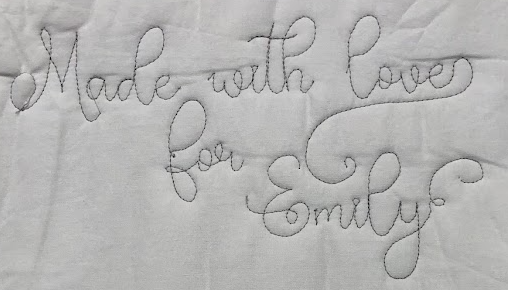 Made with love
for
Emily